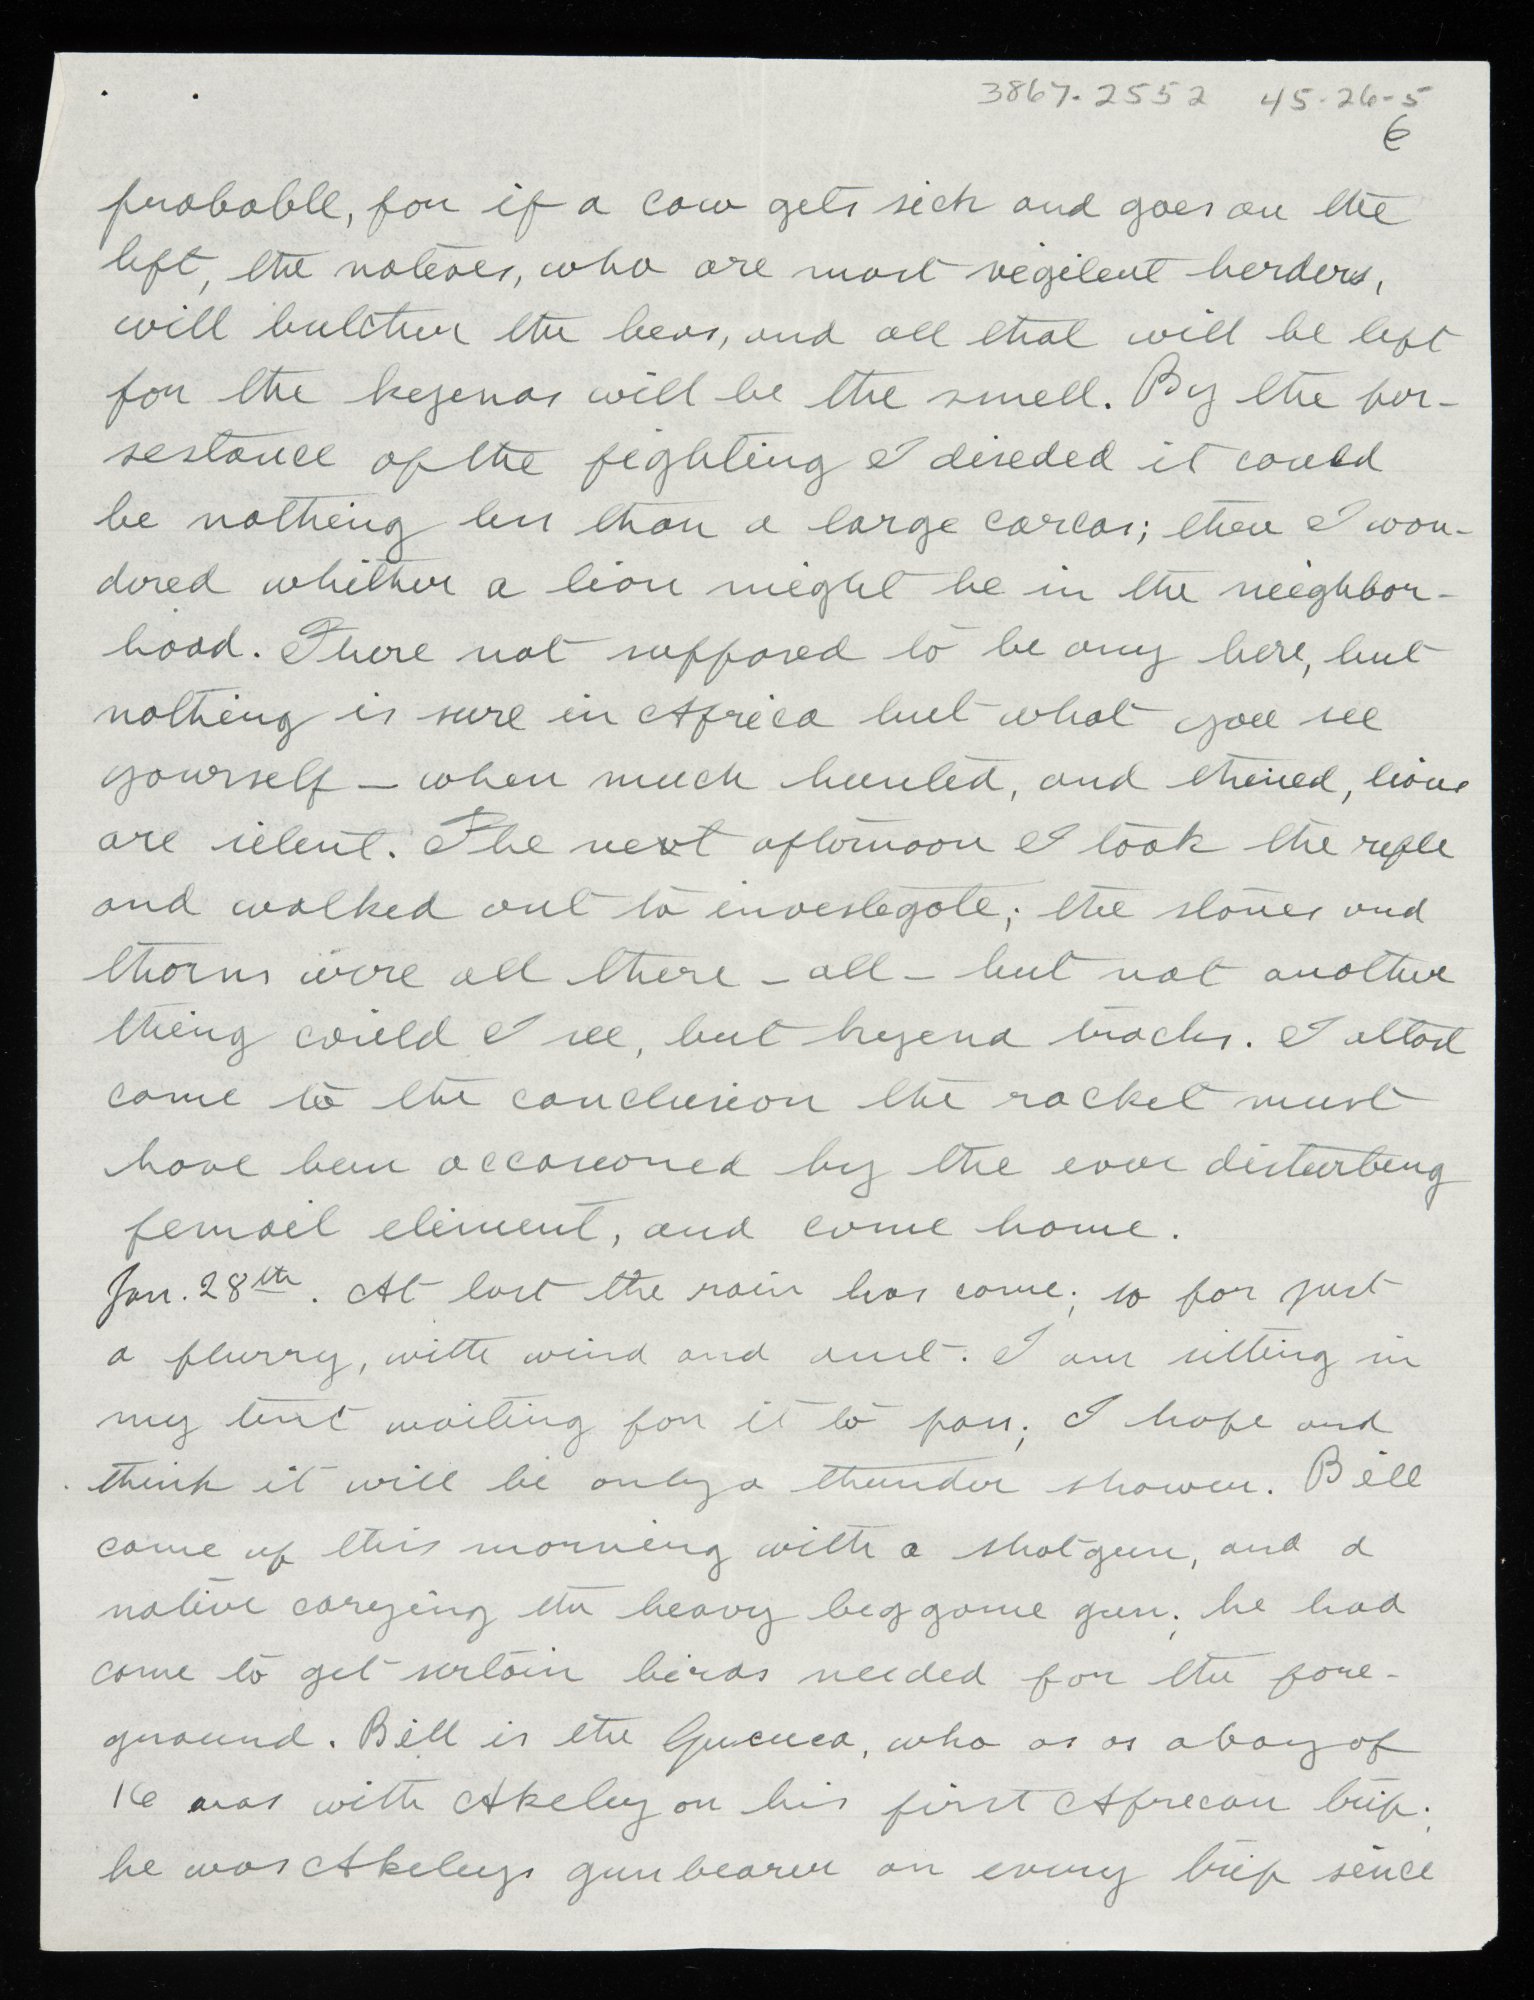 3867.2552 45-26-5
6
probable, for if a cow gets sick and goes on the
lift, the natives, who are most vigilent herders,
will butcher the beas, and all that will be left
for the hyenas will be the smell. By the per-
sestance of the fighting I diseded it could
be nothing less than a large carcas; then I won-
dered whither a lion might be in the neighbor-
hood. There not supposed to be any here, but
nothing is sure in Africa but what you see
yourself – when much hunted, and thined, lions
are silent. The next afternoon I took the rifle
and walked out to investegate; the stones and
thorns were all there – all – but not another
thing could I see, but hyena tracks. I at last
came to the conclusion the racket must
have been occasioned by the ever disturbing
femail eliment, and come home.
Jan. 28th. At last the rain has come; so far just
a flurry, with wind and dust. I am sitting in
my tent waiting for it to pass; I hope and
think it will be only a thunder shower. Bill
came up this morning with a shotgun, and a
native carying the heavy big game gun; he had
come to get sertain birds needed for the fore-
ground. Bill is the who as as a boy of
16 was with Akeley on his first African trip;
he was Akeleys gunbearer on every trip since